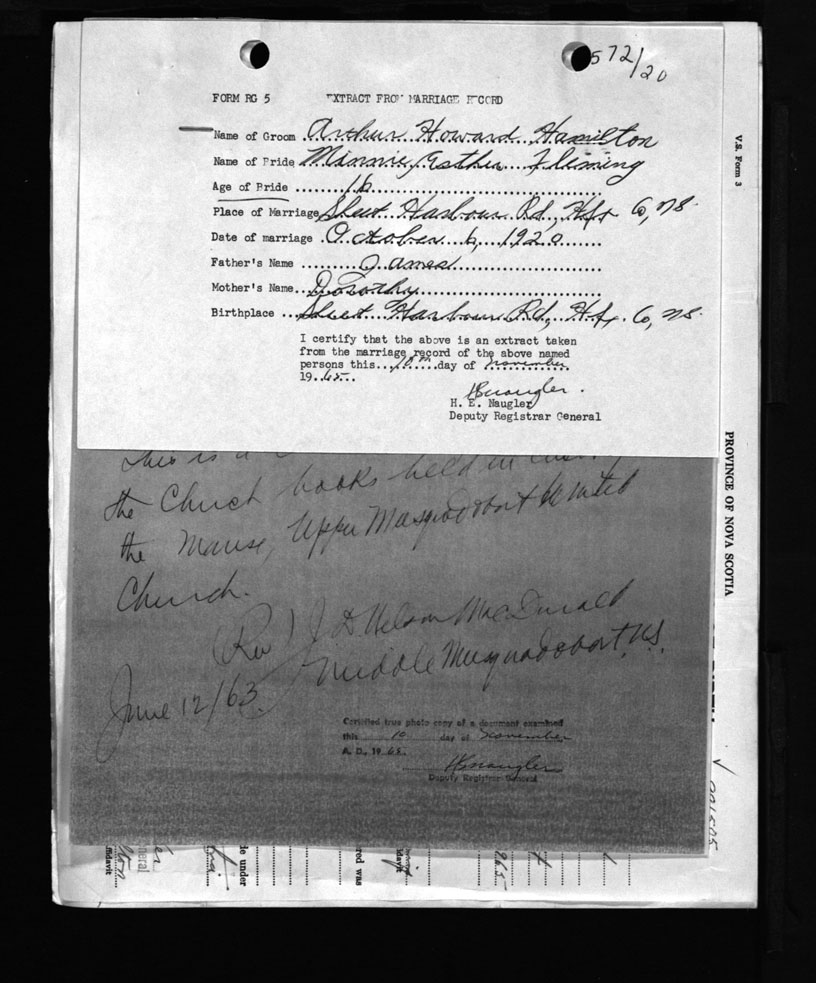 572/20
FORM RG 5 EXTRACT FROM MARRIAGE RECORD
Name of Groom Arthur Howard Hamilton
Name of Bride Minnie Esther Fleming
Age of Bride 16
Place of Marriage Sheet Harbour Rd, Hfx Co, NS.
Date of marriage October 6, 1920
Father's Name James
Mother's Name Dorothy
Birthplace Sheet Harbour Rd, Hfx. Co, NS.
I certify that the above is an extract taken
from the marriage record of the above named
persons this 10th day of November
1965
HENaugler.
H. E. Naugler
Deputy Registrar General
This is a
the Church books held in
the Manse, Upper Musquodoboit United
Church.
(Rev) J D Nelson MacDonald
Middle Musquodoboit, N.S.
June 12/63.
Certified true photo copy of a document examined
this 10 day of November
A. D., 1965.
HENaugler
Deputy Registrar General
V.S. Form 3
PROVINCE OF NOVA SCOTIA
de under
red was
965
ffidavit